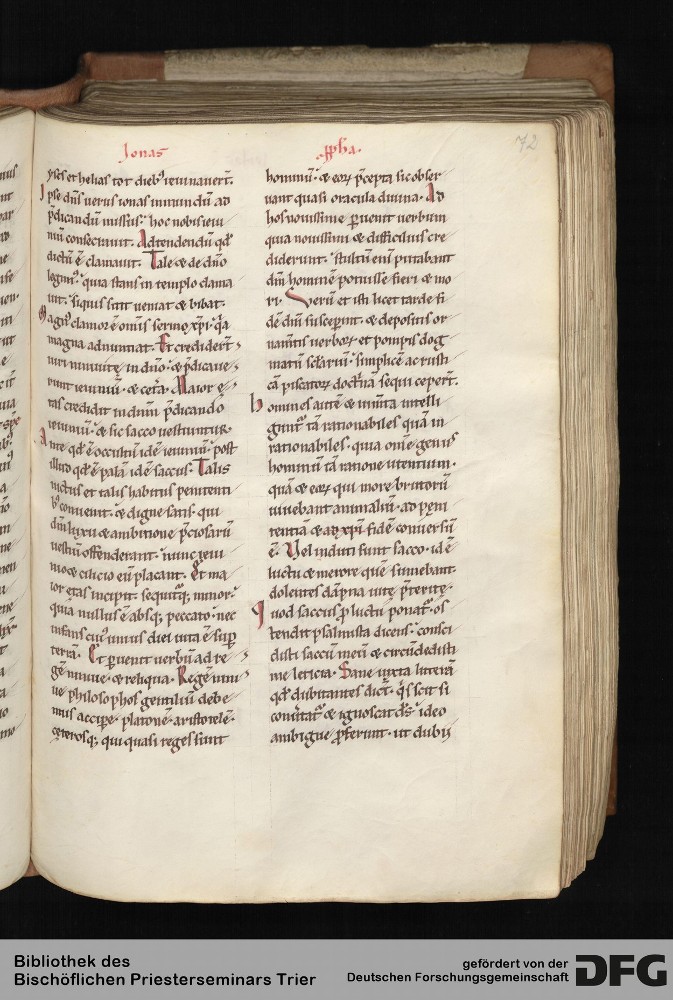 Jonas
ꝓph̄a.
72
yses et helias tot dieb᷒ ieiunauerī.
Ipse dn̄s uerus ionas inmundū ad
p̄dicandū missus: hoc nobis ieiu
niū consecrauit. Adtendendū qđ
dictū ē clamauit. Tale & de dn̄o
legim᷒: quia stans in templo clama
uit. siquis sitit ueniat & bibat.
Magn᷒ clamor ē omīs sermo xp̄i: q̄a
magna adnuntiat. Et crediderī
uiri niniuitę in dn̄o: & p̄dicaue
runt ieiuniū. & cet̄a. Maior ę
tas credidit in dn̄m p̄dicando
ieiuniū: & sic sacco uestiuntur.
Ante qđ ē occultū idē ieiuniū: post
illud qđ ē palā idē saccus. Talis
uictus et talis habitus penitenti
b᷒ conuenit. & digne satis. qui
dn̄m luxu & ambitione p̄ciosarū
uestiū offenderant: nunc ieiu
nio & cilicio eū placant. Et ma
ior ętas incipit. sequitq; minor:
quia nullus ē absq; peccato: nec
infans cui᷒ unius diei uita ē sup
terrā. Et peruenit uerbū ad re
gē niniue. & reliqua. Regē nini
ue philosophos gentiliū debe
mus accipe. platonē. aristotelē.
cęterosq; qui quasi reges sunt
hominū: & eoꝝ p̄cepta sic obser
uant quasi oracula diuina. Ad
hos nouissime ꝑuenit uerbum
quia nouissimi & difficilius cre
diderunt. Stultū enī putabant
dn̄m hominē potuisse fieri & mo
ri. Verū et isti licet tarde fi
dē dn̄i susceperunt. & depositis or
namtis uerboꝝ et pompis dog
matū sclarium: simplicē ac rusti
cā piscatoꝝ doctnā sequi ceperī.
homines autē & iumta intelli
guntr̄ tā rationabiles quā in
rationabiles. quia om̄e genus
hominū tā ratione utentium.
quā & eoꝝ qui more brutorū
uiuebant animaliū. ad pęni
tentiā & ad xp̄i fidē conuersū
ē. Vel induti sunt sacco. idē
luctu & merore quē sumebant
dolentes dāpna uitę p̄teritę.
Quod saccus ꝓ luctu ponatr̄. os
tendit psalmista dicens. consci
disti saccū meū & circūdedisti
me leticia. Sane iuxta litterā
qđ dubitantes dict̄. qīs scit si
conuītatr̄ & ignoscat d̄s: ideo
ambigue ꝓferunt. ut dubii
Bibliothek des
Bischöflichen Priesterseminars Trier
gefördert von der
Deutschen Forschungsgemeinschaft
DFG